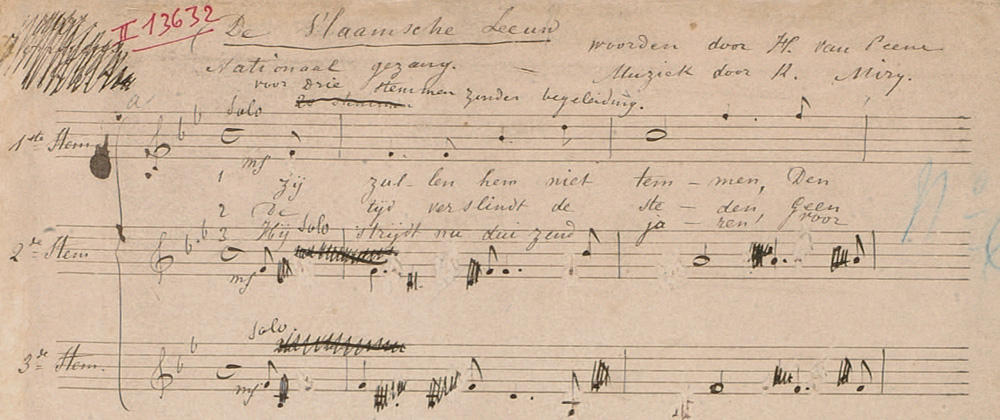 II 13632
De Vlaamsche Leeuw
woorden door H. van Peene
Nationaal gezang. — Muziek door K. Miry.
voor Drie stemmen zonder begeleiding.
Solo
1ste Stem
mf
1 Zij zul-len hem niet tem-men, Den
2 De tijd verslindt de ste-den, Geen
3 Hij strijdt nu dui zend ja-ren voor
Solo
2de Stem
mf
Solo.
3de Stem.
mf